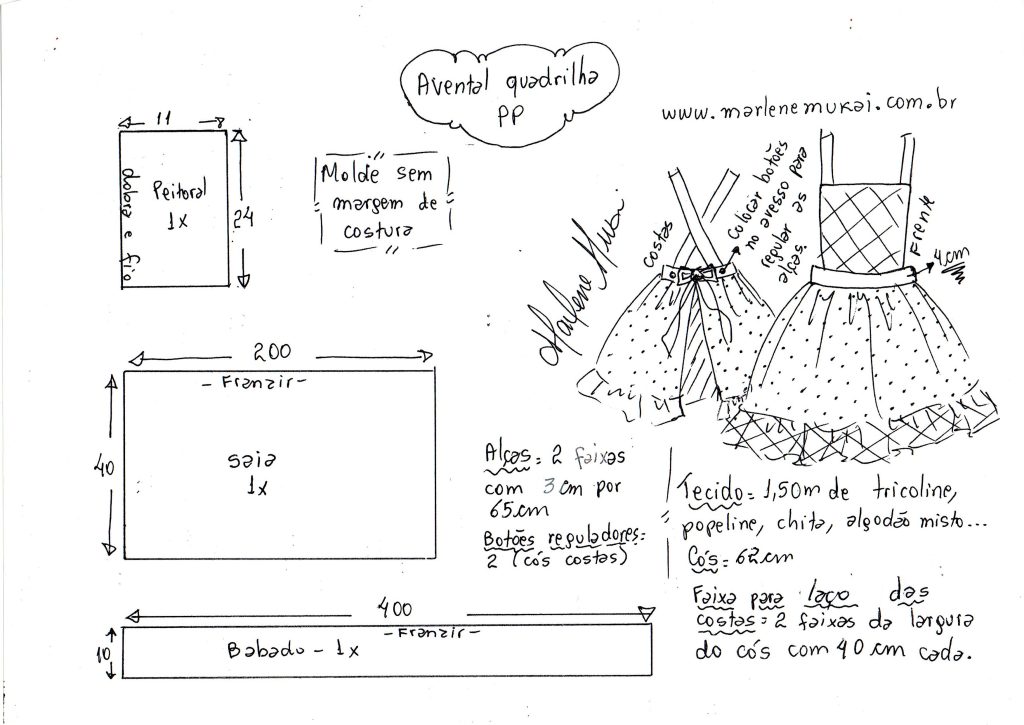 Avental quadrilha
PP
www.marlenemukai.com.br
11
dobra e fio
Peitoral
1x
24
Molde sem
margem de
costura
Marlene Mukai
costas
Colocar botões
no avesso para
regular as
alças.
Frente
4cm
200
- Franzir -
40
saia
1x
Alças: 2 faixas
com 3cm por
65cm
Botões reguladores:
2 (cós costas)
Tecido: 1,50m de tricoline,
popeline, chita, algodão misto...
Cós: 62cm
Faixa para laço das
costas: 2 faixas da largura
do cós com 40cm cada.
400
- Franzir -
10
Babado - 1x